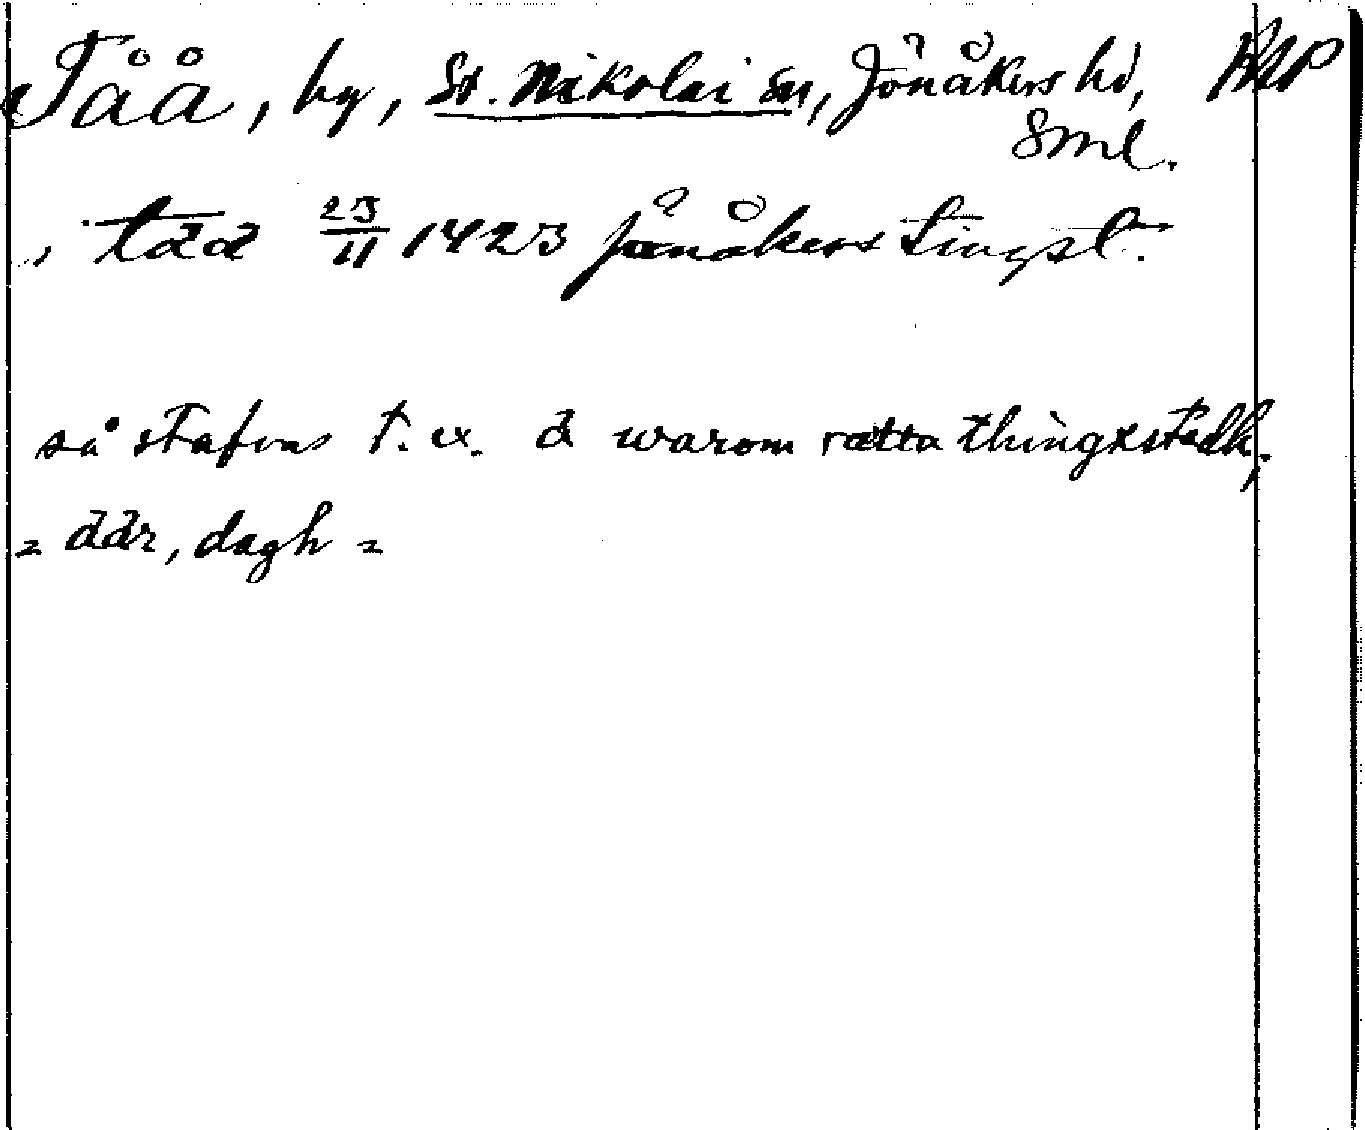 Tåå, by, St. Nikolai sn, Jönåkers hd, RAP
Sml.
i täa 23/11 1423 jönåkers tingst.
så stafvas t. ex. ä warom rætta thingxstædh,
= äär, dagh =